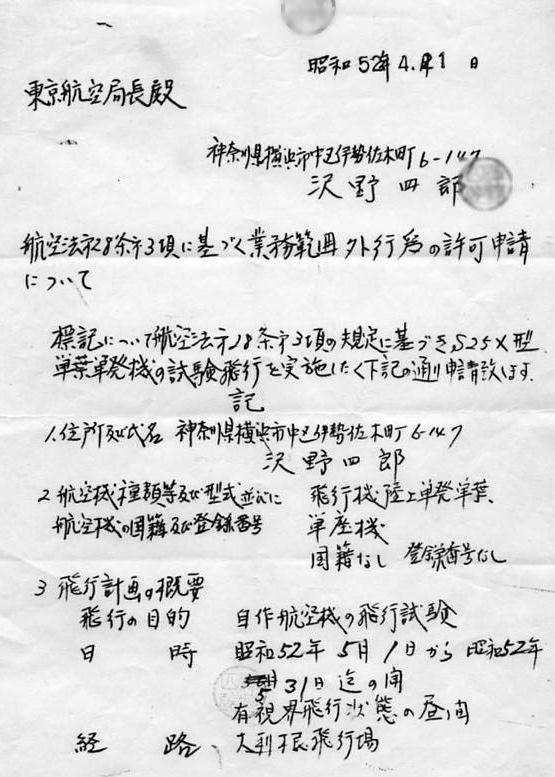 昭和52年4.21日
東京航空局長殿
神奈川県横浜市中区伊勢佐木町6-147
沢野四郎
航空法第28条第3項に基づく業務範囲外行為の許可申請
について
標記について航空法第28条第3項の規定に基づきS25X型
単葉単発機の試験飛行を実施したく下記の通り申請致します.
記
1.住所及び氏名 神奈川県横浜市中区伊勢佐木町6-147
沢野四郎
2 航空機種類等及び型式並びに 飛行機陸上単発単葉
航空機の国籍及び登録番号 単座機
国籍なし 登録番号なし
3 飛行計画の概要
飛行の目的 自作航空機の飛行試験
日 時 昭和52年5月1日から昭和52年
5 31日迄の間
有視界飛行状態の昼間
経 路 大利根飛行場